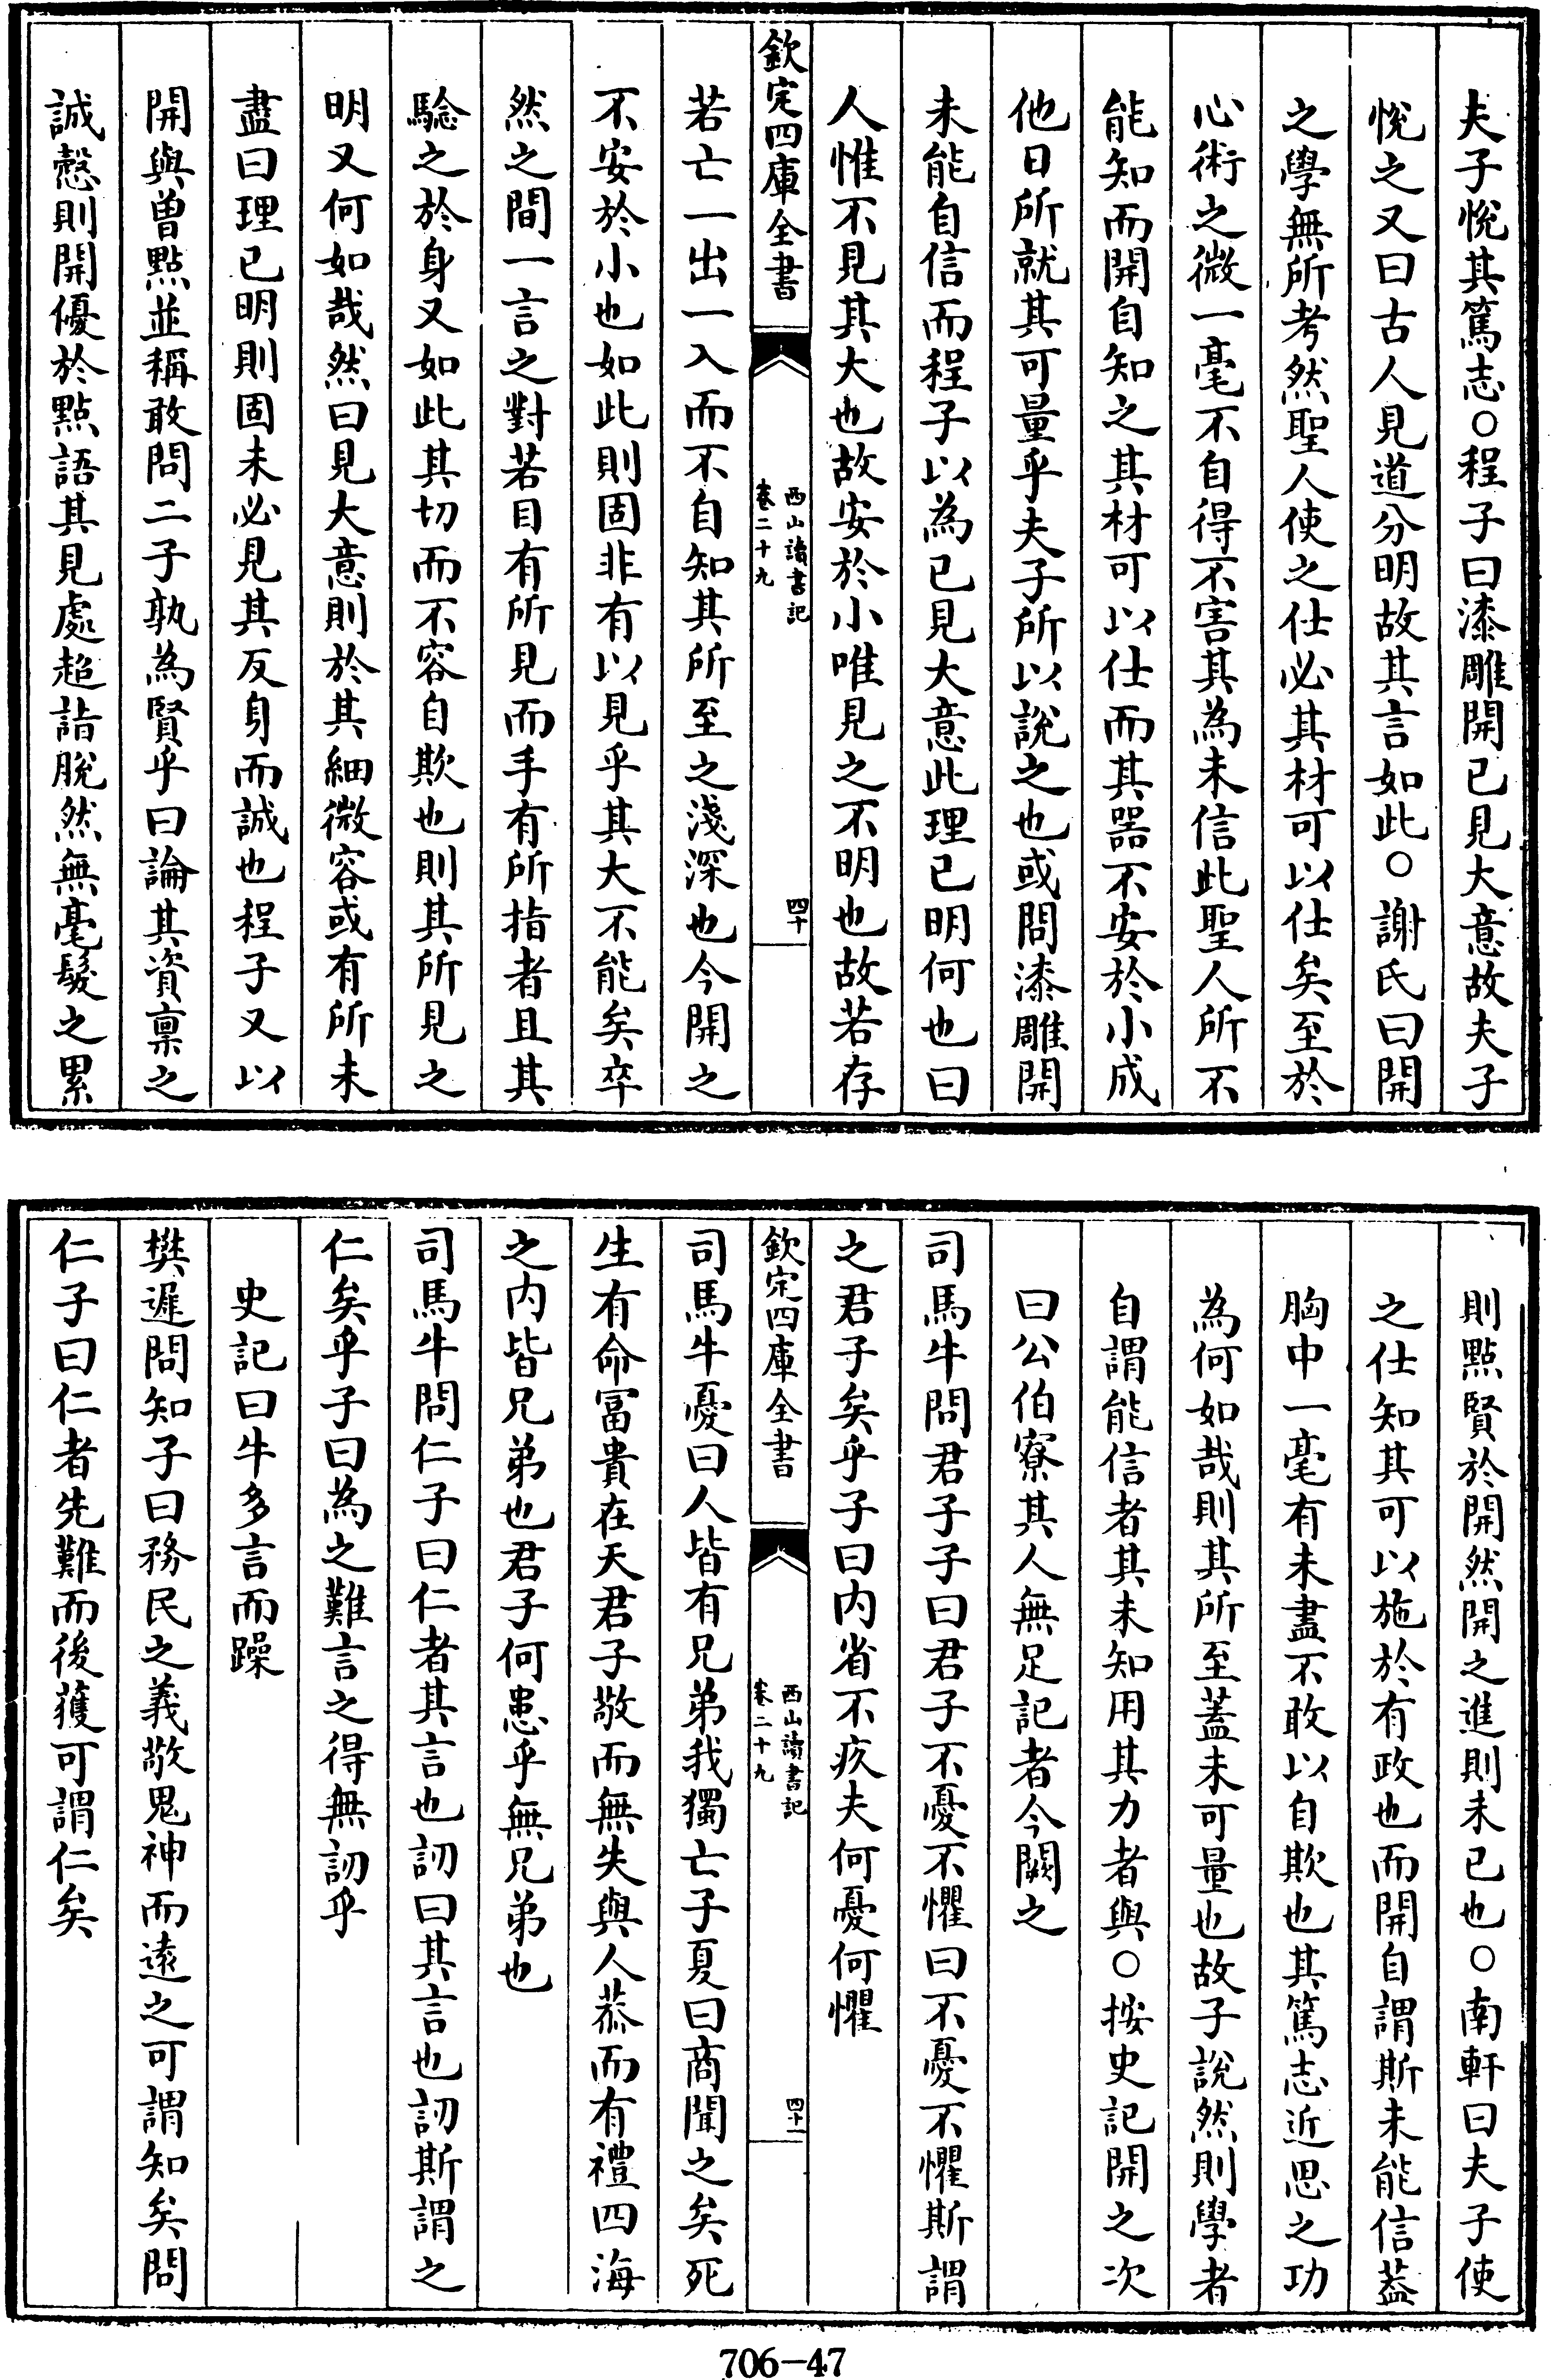 夫子悅其篤志○程子曰漆雕開已見大意故夫子
悅之又曰古人見道分明故其言如此○謝氏曰開
之學無所考然聖人使之仕必其材可以仕矣至於
心術之微一毫不自得不害其為未信此聖人所不
能知而開自知之其材可以仕而其器不安於小成
他日所就其可量乎夫子所以說之也或問漆雕開
未能自信而程子以為已見大意此理已明何也曰
人惟不見其大也故安於小唯見之不明也故若存
欽定四庫全書
西山讀書記
卷二十九
四十
若亡一出一入而不自知其所至之淺深也今開之
不安於小也如此則固非有以見乎其大不能矣卒
然之間一言之對若目有所見而手有所指者且其
驗之於身又如此其切而不容自欺也則其所見之
明又何如哉然曰見大意則於其細微容或有所未
盡曰理已明則固未必見其反身而誠也程子又以
開與曾點並稱敢問二子孰為賢乎曰論其資稟之
誠慤則開優於點語其見處超詣脫然無毫髮之累
則點賢於開然開之進則未已也○南軒曰夫子使
之仕知其可以施於有政也而開自謂斯未能信葢
胸中一毫有未盡不敢以自欺也其篤志近思之功
為何如哉則其所至蓋未可量也故子說然則學者
自謂能信者其未知用其力者與○按史記開之次
曰公伯寮其人無足記者今闕之
司馬牛問君子子曰君子不憂不懼曰不憂不懼斯謂
之君子矣乎子曰内省不疚夫何憂何懼
欽定四庫全書
西山讀書記
卷二十九
四十一
司馬牛憂曰人皆有兄弟我獨亡子夏曰商聞之矣死
生有命冨貴在天君子敬而無失與人恭而有禮四海
之内皆兄弟也君子何患乎無兄弟也
司馬牛問仁子曰仁者其言也訒曰其言也訒斯謂之
仁矣乎子曰為之難言之得無訒乎
史記曰牛多言而躁
樊遲問知子曰務民之義敬鬼神而逺之可謂知矣問
仁子曰仁者先難而後獲可謂仁矣
706-47